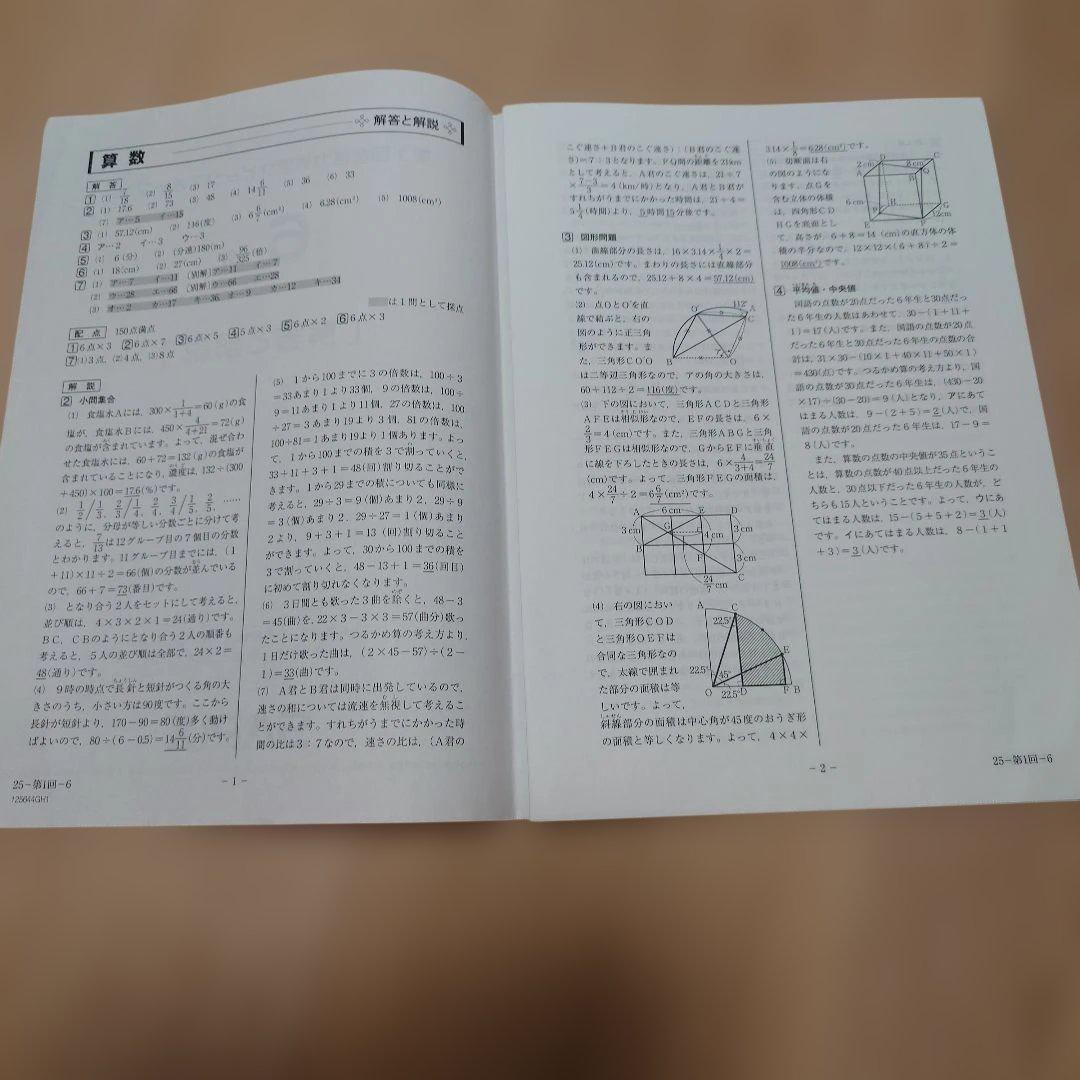 解答と解説
算数
解答
1 (1) 7/18 (2) 8/15 (3) 17 (4) 14 6/11 (5) 36 (6) 33
2 (1) 17.6 (2) 73 (3) 48
(7) ア…5 イ…15
3 (1) 57.12(cm) (2) 116(度) (3) 6 6/7(cm²) (4) 6.28(cm²) (5) 1008(cm³)
4 ア…2 イ…3 ウ…3
5 (1) 6(分) (2) (分速)180(m) (3) 96/325(倍)
6 (1) 18(cm) (2) 27(cm)
7 (1) ア…7 イ…11 (別解)ア…11 イ…7
(2) ウ…28 エ…66 (別解)ウ…66 エ…28
(3) オ…2 カ…17 キ…36 オ…9 カ…12 キ…34
は1問として採点
配点 150点満点
1 6点×3 2 6点×7 3 6点×5 4 5点×3 5 6点×2 6 6点×3
7 (1)3点, (2)4点, (3)8点
解説
2 小問集合
(1) 食塩水Aには,300×1/(1+4)=60(g)の食
塩が,食塩水Bには,450×4/(4+21)=72(g)
の食塩が含まれています。よって,混ぜ合わ
せた食塩水には,60+72=132(g)の食塩が
含まれていることになり,濃度は,132÷(300
+450)×100=17.6(%)です。
(2) 1/2/1/3, 2/3/1/4, 2/4, 3/4/1/5, 2/5, ……
のように,分母が等しい分数ごとに分けて考
えると,7/13は12グループ目の7個目の分数
とわかります。11グループ目までには,(1
+11)×11÷2=66(個)の分数が並んでいる
ので,66+7=73(番目)です。
(3) となり合う2人をセットにして考えると,
並び順は,4×3×2×1=24(通り)です。
BC,CBのようにとなり合う2人の順番も
考えると,5人の並び順は全部で,24×2=
48(通り)です。
(4) 9時の時点で長針と短針がつくる角の大
きさのうち,小さい方は90度です。ここから
長針が短針より,170-90=80(度)多く動け
ばよいので,80÷(6-0.5)=14 6/11(分)です。
(5) 1から100までに3の倍数は,100÷3
=33あまり1より33個,9の倍数は,100÷
9=11あまり1より11個,27の倍数は,100
÷27=3あまり19より3個,81の倍数は,
100÷81=1あまり19より1個あります。よっ
て,1から100までの積を3で割っていくと,
33+11+3+1=48(回)割り切ることがで
きます。1から29までの積についても同様に
考えると,29÷3=9(個)あまり2,29÷9
=3(個)あまり2,29÷27=1(個)あまり
2より,9+3+1=13(回)割り切ること
ができます。よって,30から100までの積を
3で割っていくと,48-13+1=36(回目)
に初めて割り切れなくなります。
(6) 3日間とも歌った3曲を除くと,48-3
=45(曲)を,22×3-3×3=57(曲分)歌っ
たことになります。つるかめ算の考え方より,
1日だけ歌った曲は,(2×45-57)÷(2-
1)=33(曲)です。
(7) A君とB君は同時に出発しているので,
速さの和については流速を無視して考えるこ
とができます。すれちがうまでにかかった時
間の比は3:7なので,速さの比は,(A君の
25-第1回-6
125644GH1
-1-
こぐ速さ+B君のこぐ速さ):(B君のこぐ速
さ)=7:3となります。PQ間の距離を21km
として考えると,A君のこぐ速さは,21÷7
×(7-3)/3=4(km/時)となり,A君とB君が
すれちがうまでにかかった時間は,21÷4=
5 1/4(時間)より,5時間15分後です。
3 図形問題
(1) 曲線部分の長さは,16×3.14×1/4×2=
25.12(cm)です。まわりの長さには直線部分
も含まれるので,25.12+8×4=57.12(cm)
です。
(2) 点OとO'を直
線で結ぶと,右の
図のように正三角
形ができます。ま
た,三角形CO'O
は二等辺三角形なので,アの角の大きさは,
60+112÷2=116(度)です。
O' 112° A
C
ア
B O
(3) 下の図において,三角形ACDと三角形
AFEは相似形なので,EFの長さは,6×
2/3=4(cm)です。また,三角形ABGと三角
形FEGは相似形なので,GからEFに垂直
に線を下ろしたときの長さは,6×4/(3+4)=24/7
(cm)です。よって,三角形FEGの面積は,
4×24/7÷2=6 6/7(cm²)です。
6cm
A E D
3cm G 4cm 3cm
B F 3cm
24/7 cm C
(4) 右の図におい
て,三角形COD
と三角形OEFは
合同な三角形なの
で,太線で囲まれ
た部分の面積は等
しいです。よって,
斜線部分の面積は中心角が45度のおうぎ形
の面積と等しくなります。よって,4×4×
A C
22.5°
E
22.5° 45°
O 22.5° D F B
3.14×1/8=6.28(cm²)です。
(5) 切断面は右
の図のようにな
ります。点Gを
含む立体の体積
は,四角形CD
HGを底面とし
て,高さが,6+8=14(cm)の直方体の体
積の半分なので,12×12×(6+8)÷2=
1008(cm³)です。
D C
2cm 8cm
A B Q
6cm
P H G
E F 12cm
4 平均値・中央値
国語の点数が20点だった6年生と30点だっ
た6年生の人数はあわせて,30-(1+11+
1)=17(人)です。また,国語の点数が20点
だった6年生と30点だった6年生の点数の合
計は,31×30-(10×1+40×11+50×1)
=430(点)です。つるかめ算の考え方より,国
語の点数が30点だった6年生は,(430-20
×17)÷(30-20)=9(人)となり,アにあて
はまる人数は,9-(2+5)=2(人)で,国
語の点数が20点だった6年生は,17-9=
8(人)です。
また,算数の点数の中央値が35点というこ
とは,算数の点数が40点以上だった6年生の
人数と,30点以下だった6年生の人数が,ど
ちらも15人ということです。よって,ウにあ
てはまる人数は,15-(5+5+2)=3(人)
です。イにあてはまる人数は,8-(1+1
+3)=3(人)です。
-2-
25-第1回-6